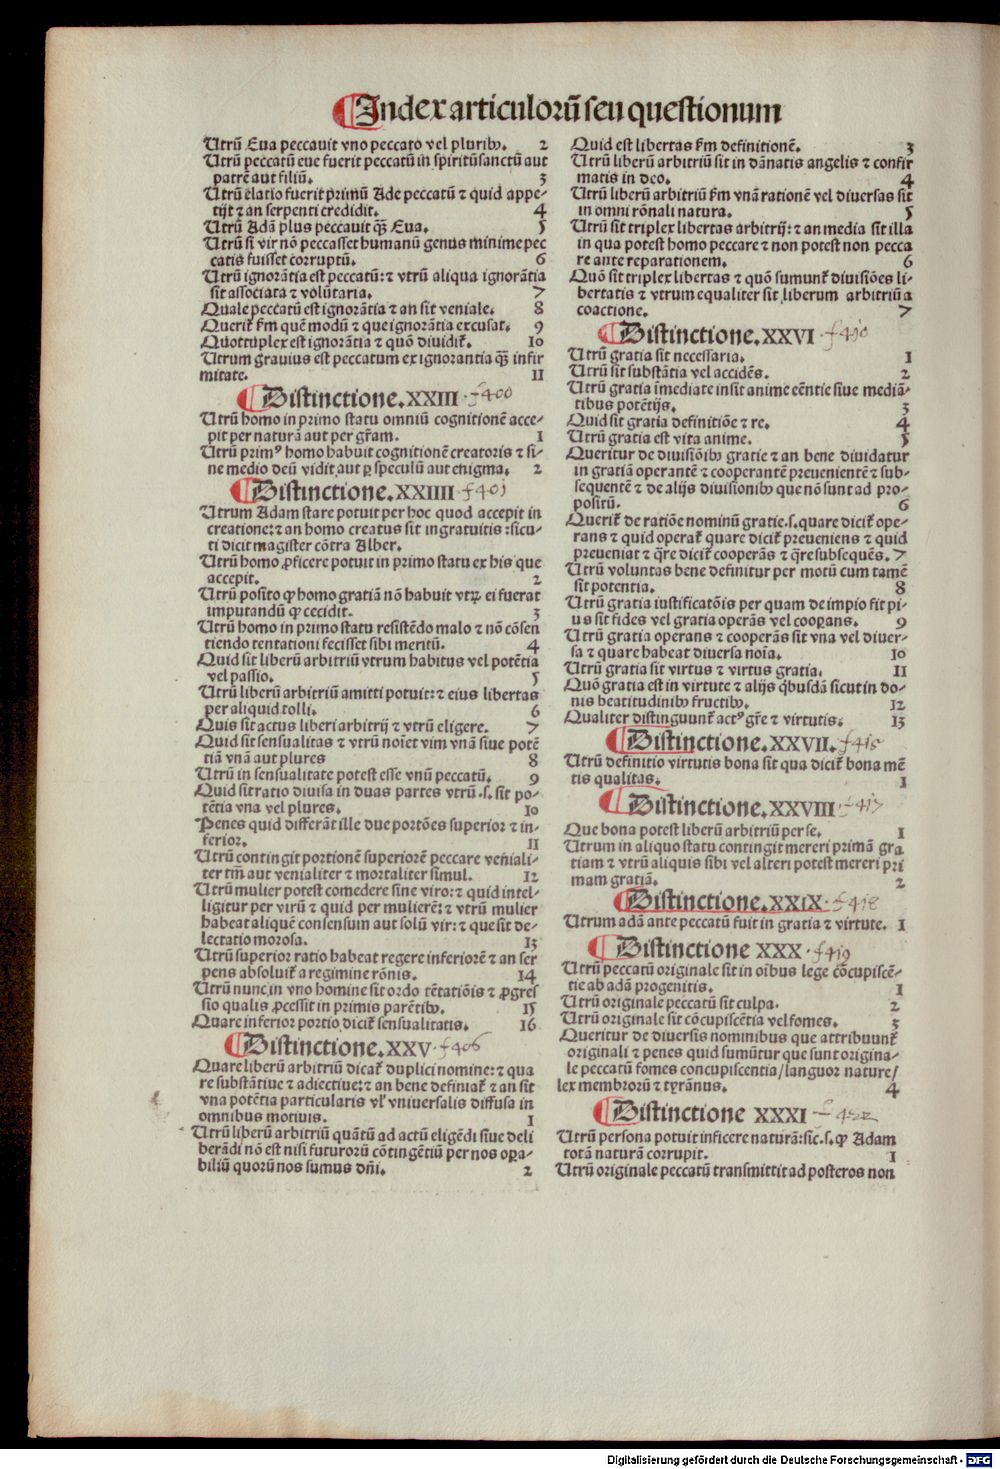 Index articuloꝝ seu questionum
Utrū Eua peccauit vno peccato vel pluribꝰ. 2
Utrū peccatū eue fuerit peccatū in spiritūsanctū aut
patrē aut filiū. 3
Utrū elatio fuerit primū Ade peccatū ⁊ quid appe-
tijt ⁊ an serpenti credidit. 4
Utrū Adā plus peccauit qꝫ Eua. 5
Utrū si vir nō peccasset humanū genus minime pec
catis fuisset corruptū. 6
Utrū ignorātia est peccatū: ⁊ vtrū aliqua ignorātia
sit associata ⁊ volūtaria. 7
Quale peccatū est ignorātia ⁊ an sit veniale. 8
Querit̄ ẜm quē modū ⁊ que ignorātia excusat. 9
Quotruplex est ignorātia ⁊ quō diuidit̄. 10
Utrum grauius est peccatum ex ignorantia qꝫ infir
mitate. 11
Distinctione.XXIII f 400
Utrū homo in primo statu omniū cognitionē acce-
pit per naturā aut per gr̄am. 1
Utrū primꝰ homo habuit cognitionē creatoris ⁊ si-
ne medio deū vidit aut ꝑ speculū aut enigma. 2
Distinctione.XXIIII f 401
Utrum Adam stare potuit per hoc quod accepit in
creatione: ⁊ an homo creatus sit in gratuitis : sicu-
ti dicit magister cōtra Alber.
Utrū homo ꝓficere potuit in primo statu ex his que
accepit. 2
Utrū posito ꝙ homo gratiā nō habuit vtꝝ ei fuerat
imputandū ꝙ cecidit. 3
Utrū homo in primo statu resistēdo malo ⁊ nō cōsen
tiendo tentationi fecisset sibi meritū. 4
Quid sit liberū arbitriū vtrum habitus vel potētia
vel passio. 5
Utrū liberū arbitriū amitti potuit: ⁊ eius libertas
per aliquid tolli. 6
Quis sit actus liberi arbitrij ⁊ vtrū eligere. 7
Quid sit sensualitas ⁊ vtrū noīet vim vnā siue potē
tiā vnā aut plures 8
Utrū in sensualitate potest esse vnū peccatū. 9
Quid sit ratio diuisa in duas partes vtrū .s. sit po-
tētia vna vel plures. 10
Penes quid differāt ille due portōes superior ⁊ in-
ferior. 11
Utrū contingit portionē superiorē peccare veniali-
ter tm̄ aut venialiter ⁊ mortaliter simul. 12
Utrū mulier potest comedere sine viro: ⁊ quid intel-
ligitur per virū ⁊ quid per mulierē: ⁊ vtrū mulier
habeat aliquē consensum aut solū vir: ⁊ que sit de-
lectatio morosa. 13
Utrū superior ratio habeat regere inferiorē ⁊ an ser
pens absoluit̄ a regimine rōnis. 14
Utrū nunc in vno homine sit ordo tētatiōis ⁊ ꝓgres
sio qualis ꝓcessit in primis parētibꝰ. 15
Quare inferior portio dicit̄ sensualitatis. 16
Distinctione.XXV f 406
Quare liberū arbitriū dicat̄ duplici nomine: ⁊ qua
re substātiue ⁊ adiectiue: ⁊ an bene definiat̄ ⁊ an sit
vna potētia particularis vl' vniuersalis diffusa in
omnibus motiuis. 1
Utrū liberū arbitriū quātū ad actū eligēdi siue deli
berādi nō est nisi futurorū cōtingētiū per nos oꝑa-
biliū quorū nos sumus dn̄i. 2
Quid est libertas ẜm definitionē. 3
Utrū liberū arbitriū sit in dānatis angelis ⁊ confir
matis in deo. 4
Utrū liberū arbitriū ẜm vnā rationē vel diuersas sit
in omni rōnali natura. 5
Utrū sit triplex libertas arbitrij: ⁊ an media sit illa
in qua potest homo peccare ⁊ non potest non pecca
re ante reparationem. 6
Quō sit triplex libertas ⁊ quō sumunt̄ diuisiōes li-
bertatis ⁊ vtrum equaliter sit liberum arbitriū a
coactione. 7
Distinctione.XXVI f 410
Utrū gratia sit necessaria. 1
Utrū sit substātia vel accidēs. 2
Utrū gratia īmediate insit anime eēntie siue mediā-
tibus potētijs. 3
Quid sit gratia definitiōe ⁊ re. 4
Utrū gratia est vita anime. 5
Queritur de diuisiōibꝰ gratie ⁊ an bene diuidatur
in gratiā operantē ⁊ cooperantē preuenientē ⁊ sub-
sequentē ⁊ de alijs diuisionibꝰ que nō sunt ad pro-
positū. 6
Querit̄ de ratiōe nominū gratie .s. quare dicit̄ ope-
rans ⁊ quid operat̄ quare dicit̄ preueniens ⁊ quid
preueniat ⁊ q̄re dicit̄ cooperās ⁊ q̄re subsequēs. 7
Utrū voluntas bene definitur per motū cum tamē
sit potentia. 8
Utrū gratia iustificatōis per quam de impio fit pi-
us sit fides vel gratia operās vel cooꝑans. 9
Utrū gratia operans ⁊ cooperās sit vna vel diuer-
sa ⁊ quare habeat diuersa noīa. 10
Utrū gratia sit virtus ⁊ virtus gratia. 11
Quō gratia est in virtute ⁊ alijs qͥbusdā sicut in do-
nis beatitudinibꝰ fructibꝰ. 12
Qualiter distinguunt̄ actꝰ gr̄e ⁊ virtutis. 13
Distinctione.XXVII. f 415
Utrū definitio virtutis bona sit qua dicit̄ bona mē
tis qualitas. 1
Distinctione.XXVIII f 417
Que bona potest liberū arbitriū per se. 1
Utrum in aliquo statu contingit mereri primā gra
tiam ⁊ vtrū aliquis sibi vel alteri potest mereri pri
mam gratiā. 2
Distinctione.XXIX. f 418
Utrum adā ante peccatū fuit in gratia ⁊ virtute. 1
Distinctione XXX. f 419
Utrū peccatū originale sit in oībus lege cōcupiscē-
tie ab adā progenitis. 1
Utrū originale peccatū sit culpa. 2
Utrū originale sit cōcupiscētia vel fomes. 3
Queritur de diuersis nominibus que attribuunt̄
originali ⁊ penes quid sumūtur que sunt origina-
le peccatū fomes concupiscentia/languor nature/
lex membrorū ⁊ tyrānus. 4
Distinctione XXXI f 422
Utrū persona potuit inficere naturā: sic .s. ꝙ Adam
totā naturā corrupit. 1
Utrū originale peccatū transmittit ad posteros non
Digitalisierung gefördert durch die Deutsche Forschungsgemeinschaft - DFG